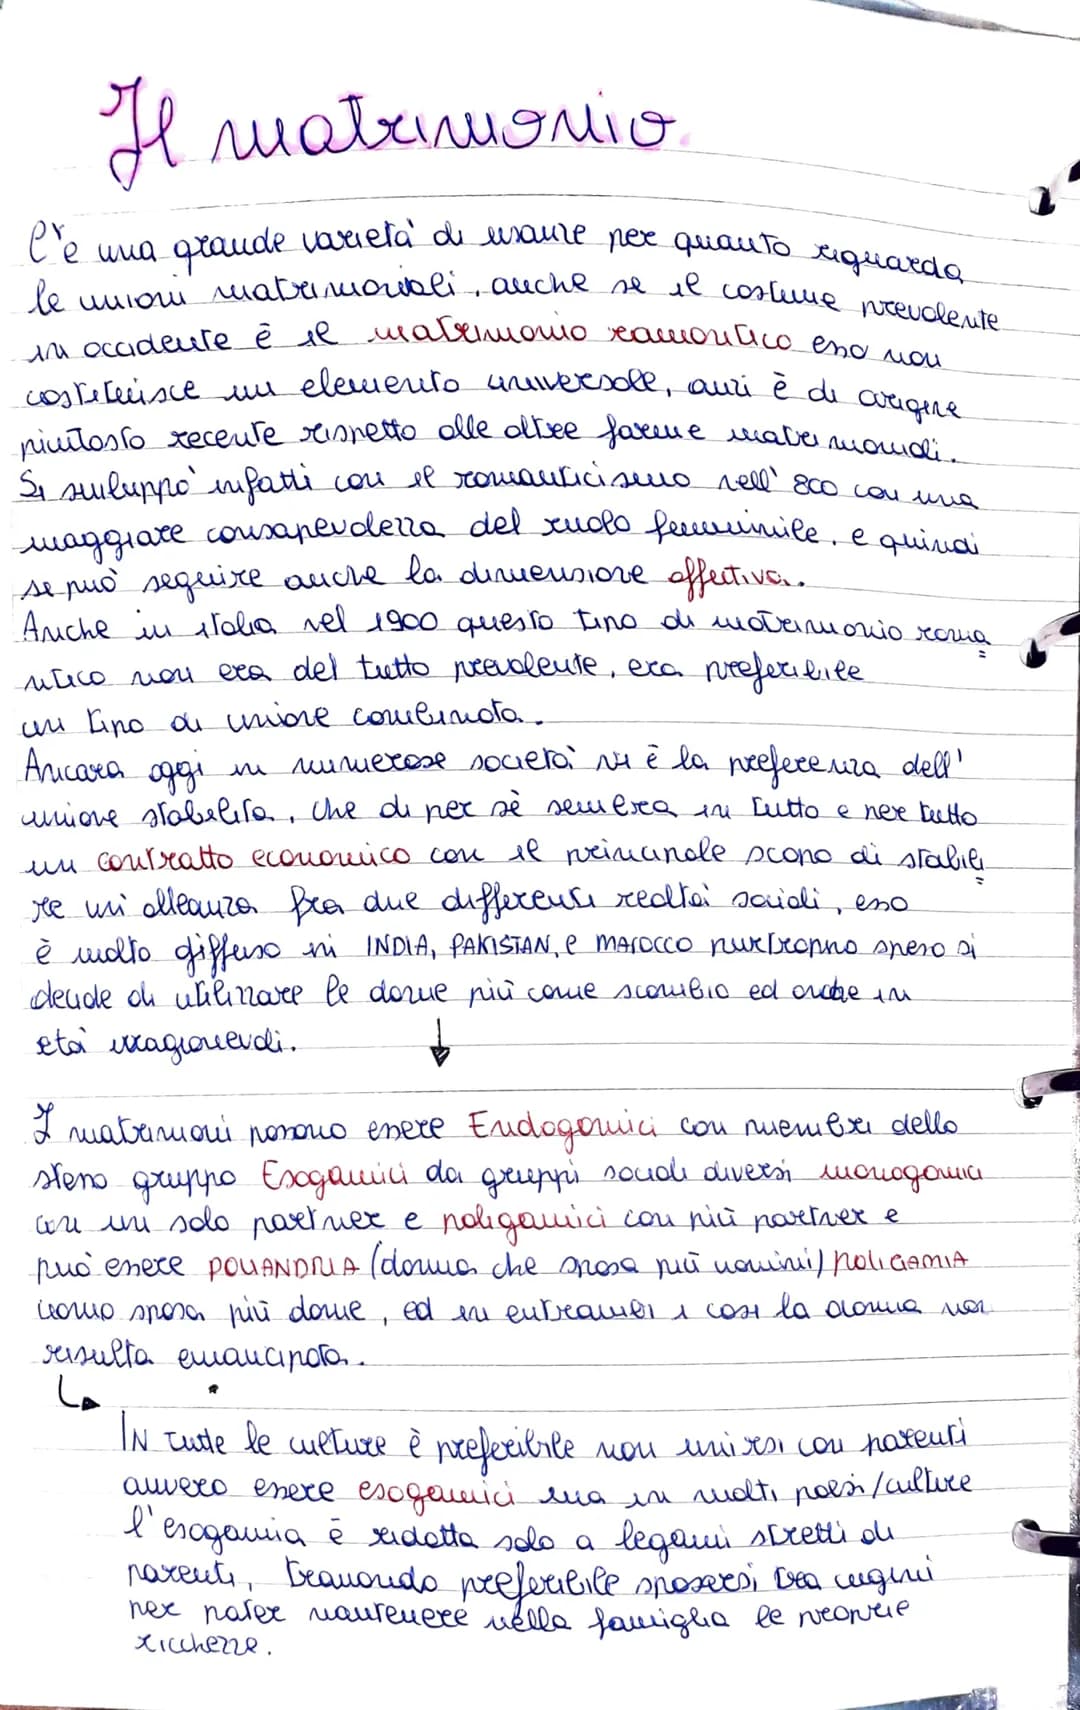 Il matrimonio.
C'è una grande varietà di usanze per quanto riguarda
le unioni matrimoniali, anche se il costume prevalente
in occidente è il matrimonio romantico esso non
costituisce un elemento universale, anzi è di origine
piuttosto recente rispetto alle altre forme matrimoniali.
Si sviluppò infatti con il romanticismo nell' 800 con una
maggiore consapevolezza del ruolo femminile, e quindi
si può seguire anche la dimensione affettiva.
Anche in italia nel 1900 questo tipo di matrimonio roma
ntico non era del tutto prevalente, era preferibile
un tipo di unione combinata.
Ancora oggi in numerose società vi è la preferenza dell'
unione stabilita, che di per sè sembra in tutto e per tutto
un contratto economico con il principale scopo di stabili
re un alleanza fra due differenti realtà sociali, esso
è molto diffuso in INDIA, PAKISTAN, e MAROCCO purtroppo spesso si
decide di utilizzare le donne più come scambio ed anche in
età irragionevoli.
I matrimoni possono essere Endogamici con membri dello
stesso gruppo Esogamici da gruppi sociali diversi monogamici
con un solo partner e poligamici con più partner e
può essere POLIANDRIA (donna che sposa più uomini) POLIGAMIA
uomo sposa più donne, ed in entrambi i casi la donna non
risulta emancipata.
IN tutte le culture è preferibile non unirsi con parenti
ovvero essere esogamici ma in molti paesi/culture
l'esogamia è ridotta solo a legami stretti di
parenti, trovando preferibile sposarsi tra cugini
per poter mantenere nella famiglia le proprie
ricchezze.